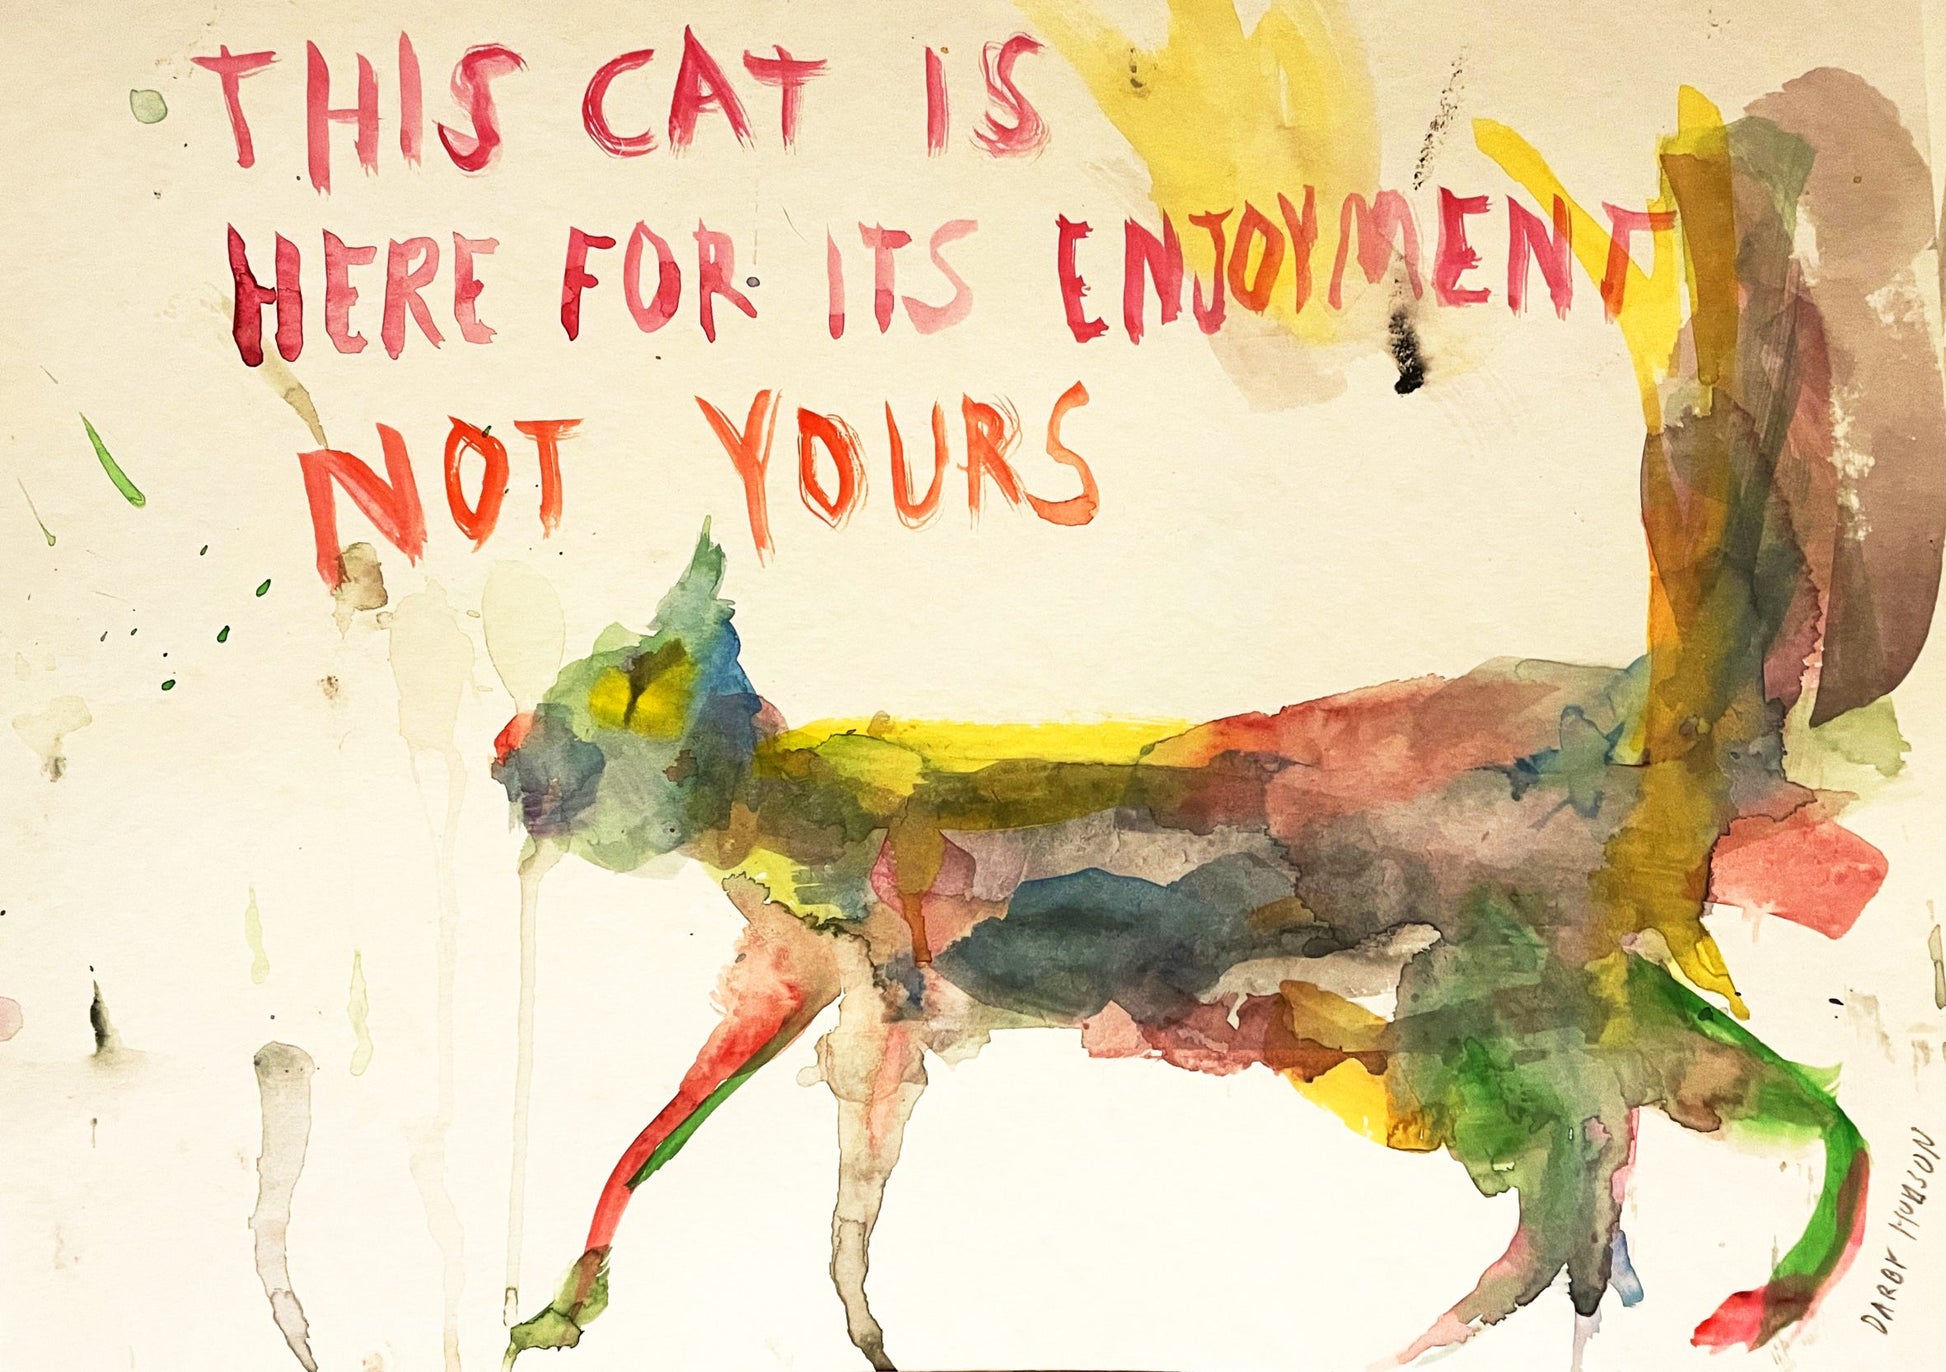 THIS CAT IS
HERE FOR ITS ENJOYMENT
NOT YOURS
DARBY HUDSON